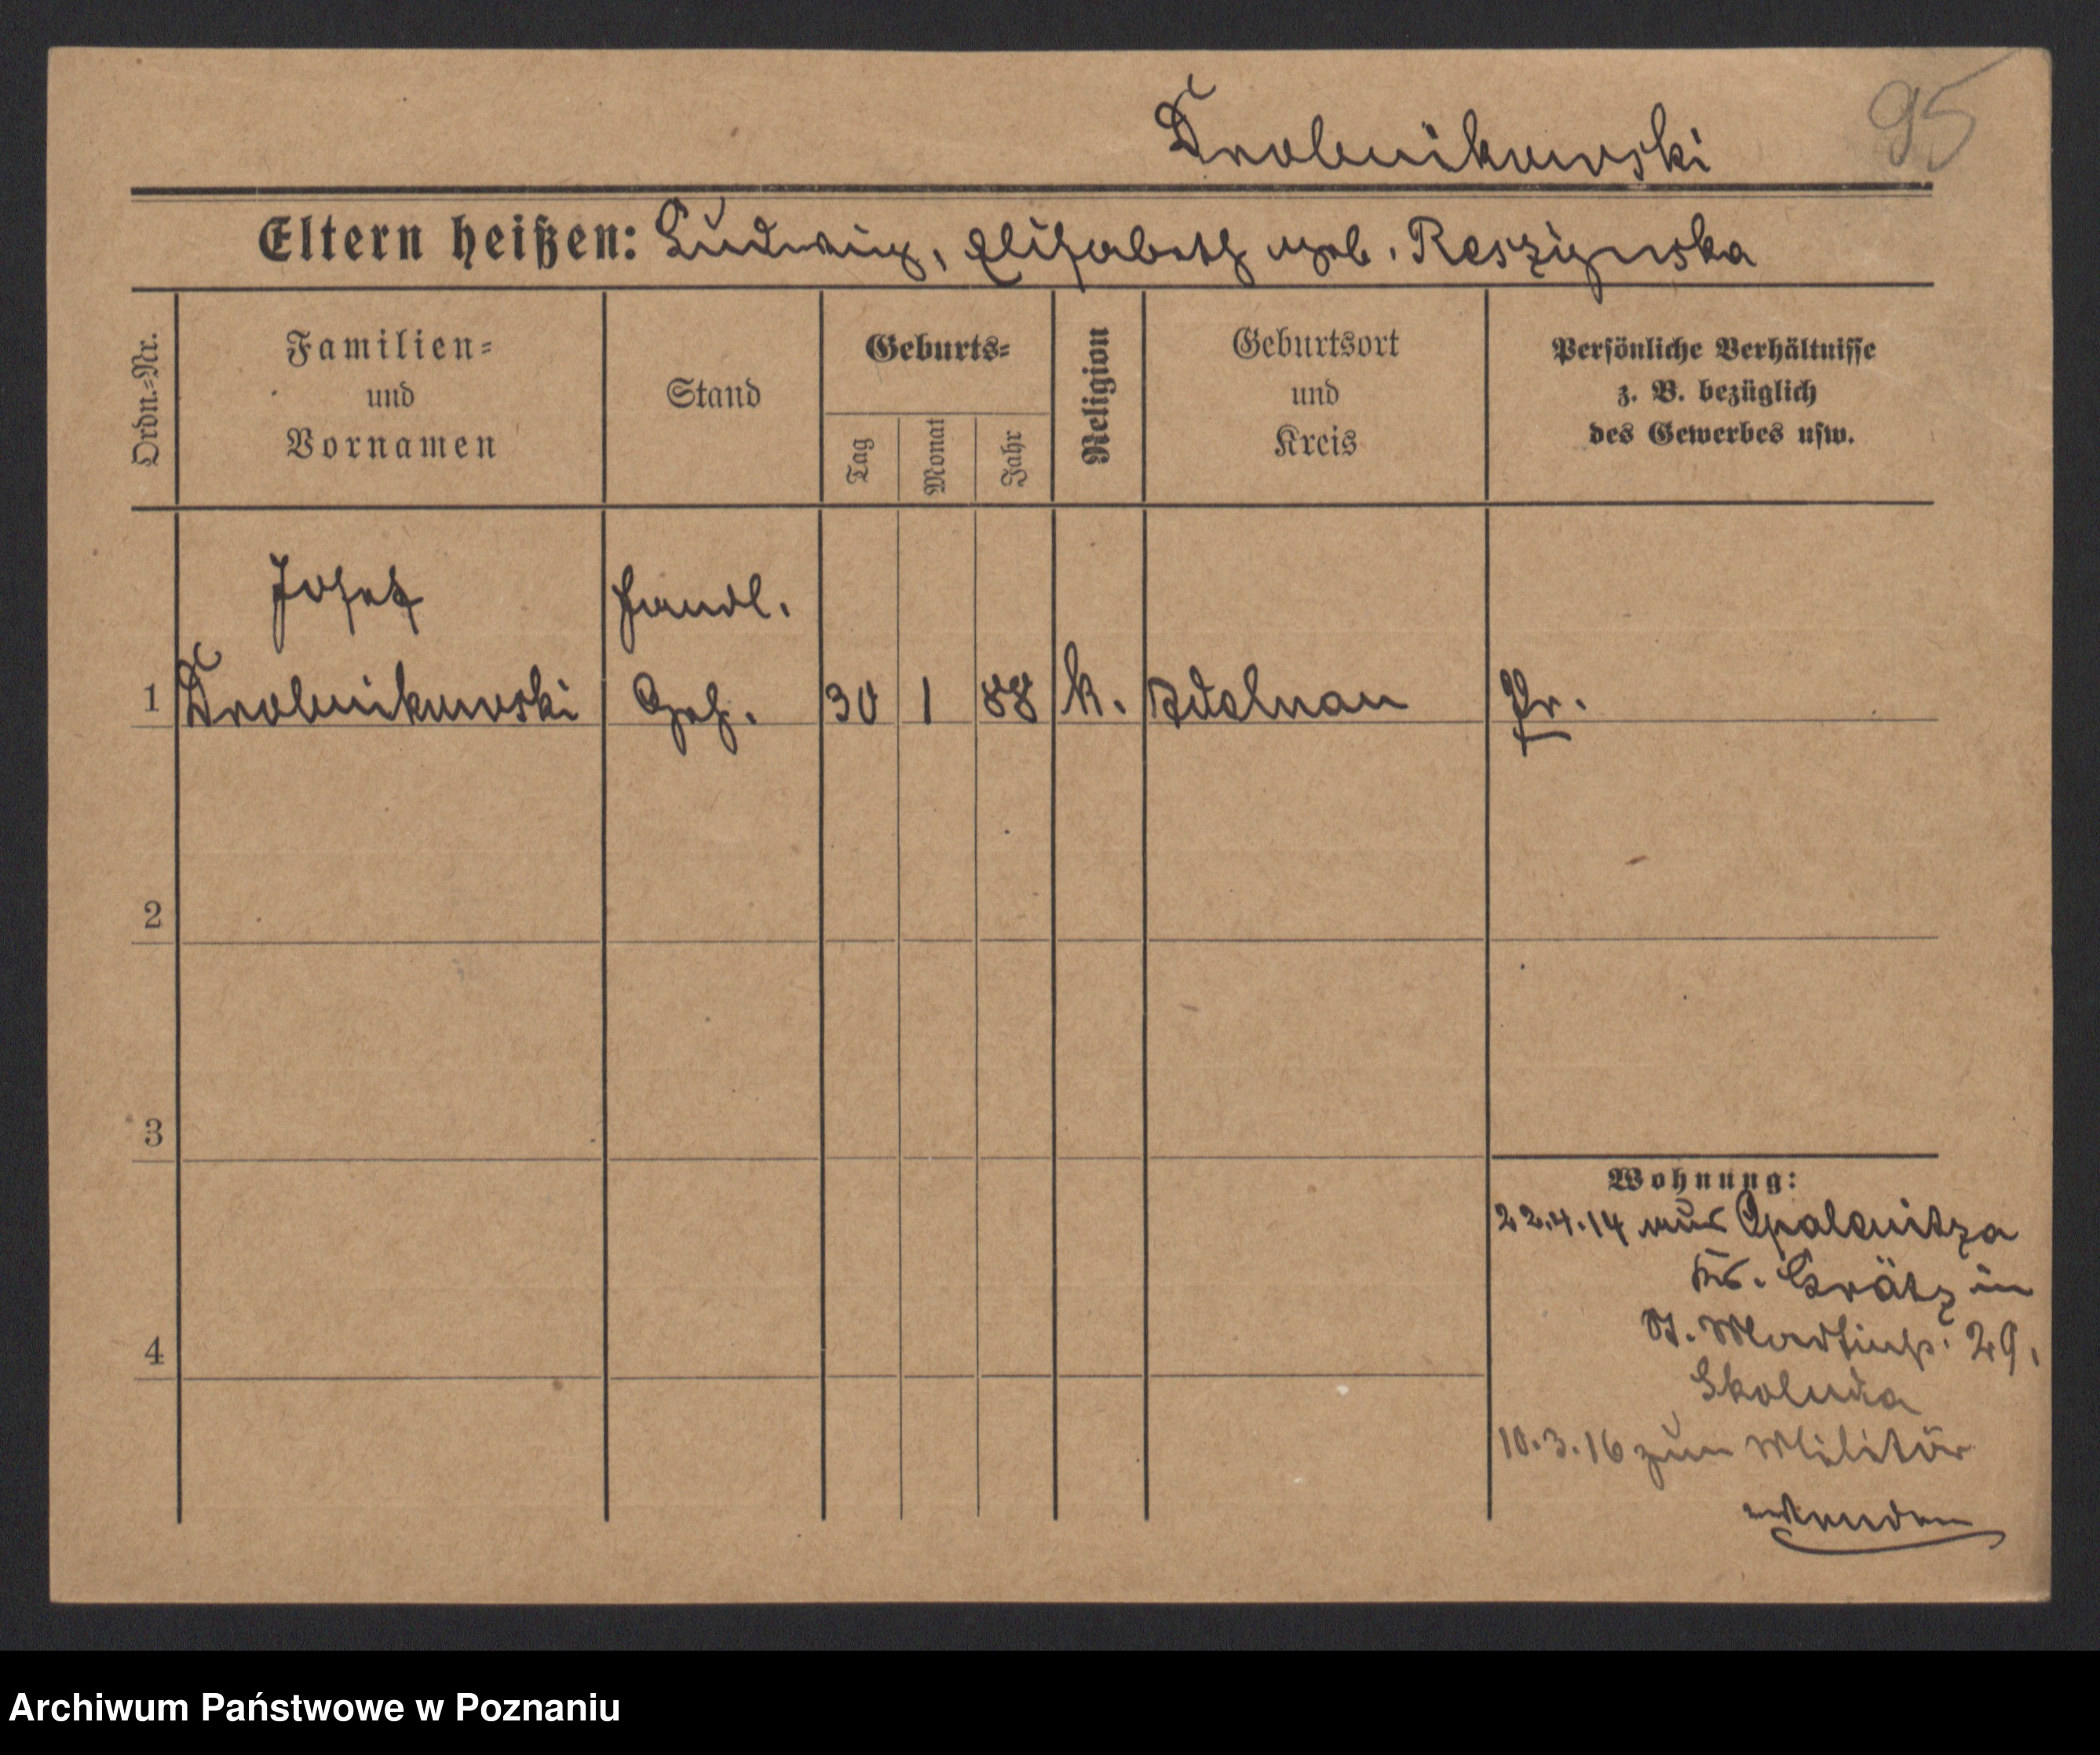 95
Drobnikowski
Eltern heißen: Ludwig, Elisabeth geb. Reszynska
Ordn.-Nr.
Familien-
und
Vornamen
Stand
Geburts-
Tag
Monat
Jahr
Religion
Geburtsort
und
Kreis
Persönliche Verhältnisse
z. B. bezüglich
des Gewerbes usw.
Josef
Drobnikowski
Handl.
Geh.
1
30 1 88 k. Adelnau Pr.
2
3
4
Wohnung:
22.4.14 aus Opalenitza
Krs. Grätz in
St. Martinstr. 29,
Skoluda
10.3.16 zum Militär
Archiwum Państwowe w Poznaniu